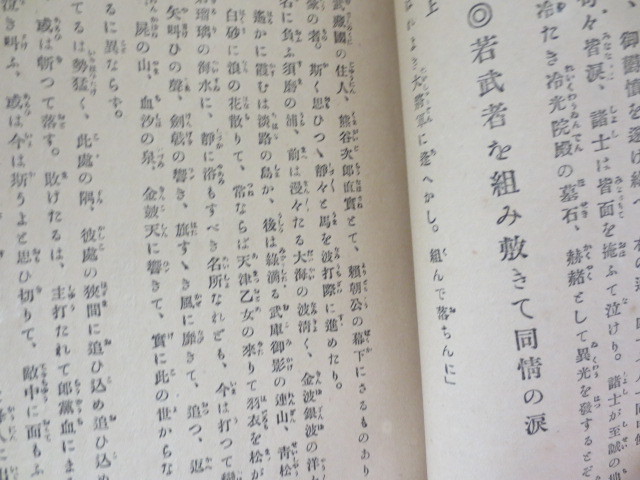 御鬱憤を遂げ給へ
々、皆涙、諸士は皆面を掩ふて泣けり。諸士が至誠の
冷たき冷光院殿の墓石、赫赭として異光を發するとぞ
◎若武者を組み敷きて同情の涙
上
よき大將軍に逢へかし。組んで落ちんに」
武藏國の住人、熊谷次郎直實とて、賴朝公の幕下にさるものあり
の者。斯く思ひつゝ靜々と馬を波打際に進めたり。
名に負ふ須磨の浦、前は漫々たる大海の波淸く、金波銀波の洋
遙かに霞むは淡路の島か、後は綠滴る武庫御影の連山、靑松
白砂に浪の花散りて、常ならば天津乙女の來りて羽衣を松が
瑠璃の海水に、靜に浴もすべき名所なれども、今は打つて
矢叫びの聲、劍戟の響き、旗すゝき風に靡きて、追つ、返
屍の山、血沙の泉、金皷天に響きて、實に此の世からな
るに異ならず。
てるは勢猛く、此處の隅、彼處の狹間に追ひ込め追ひ込め
或は斬つて落す。敗けたるは、主打たれて郎黨血によ
泣き叫ふ、或は今は斯うよと思ひ切りて、敵中に面もふ